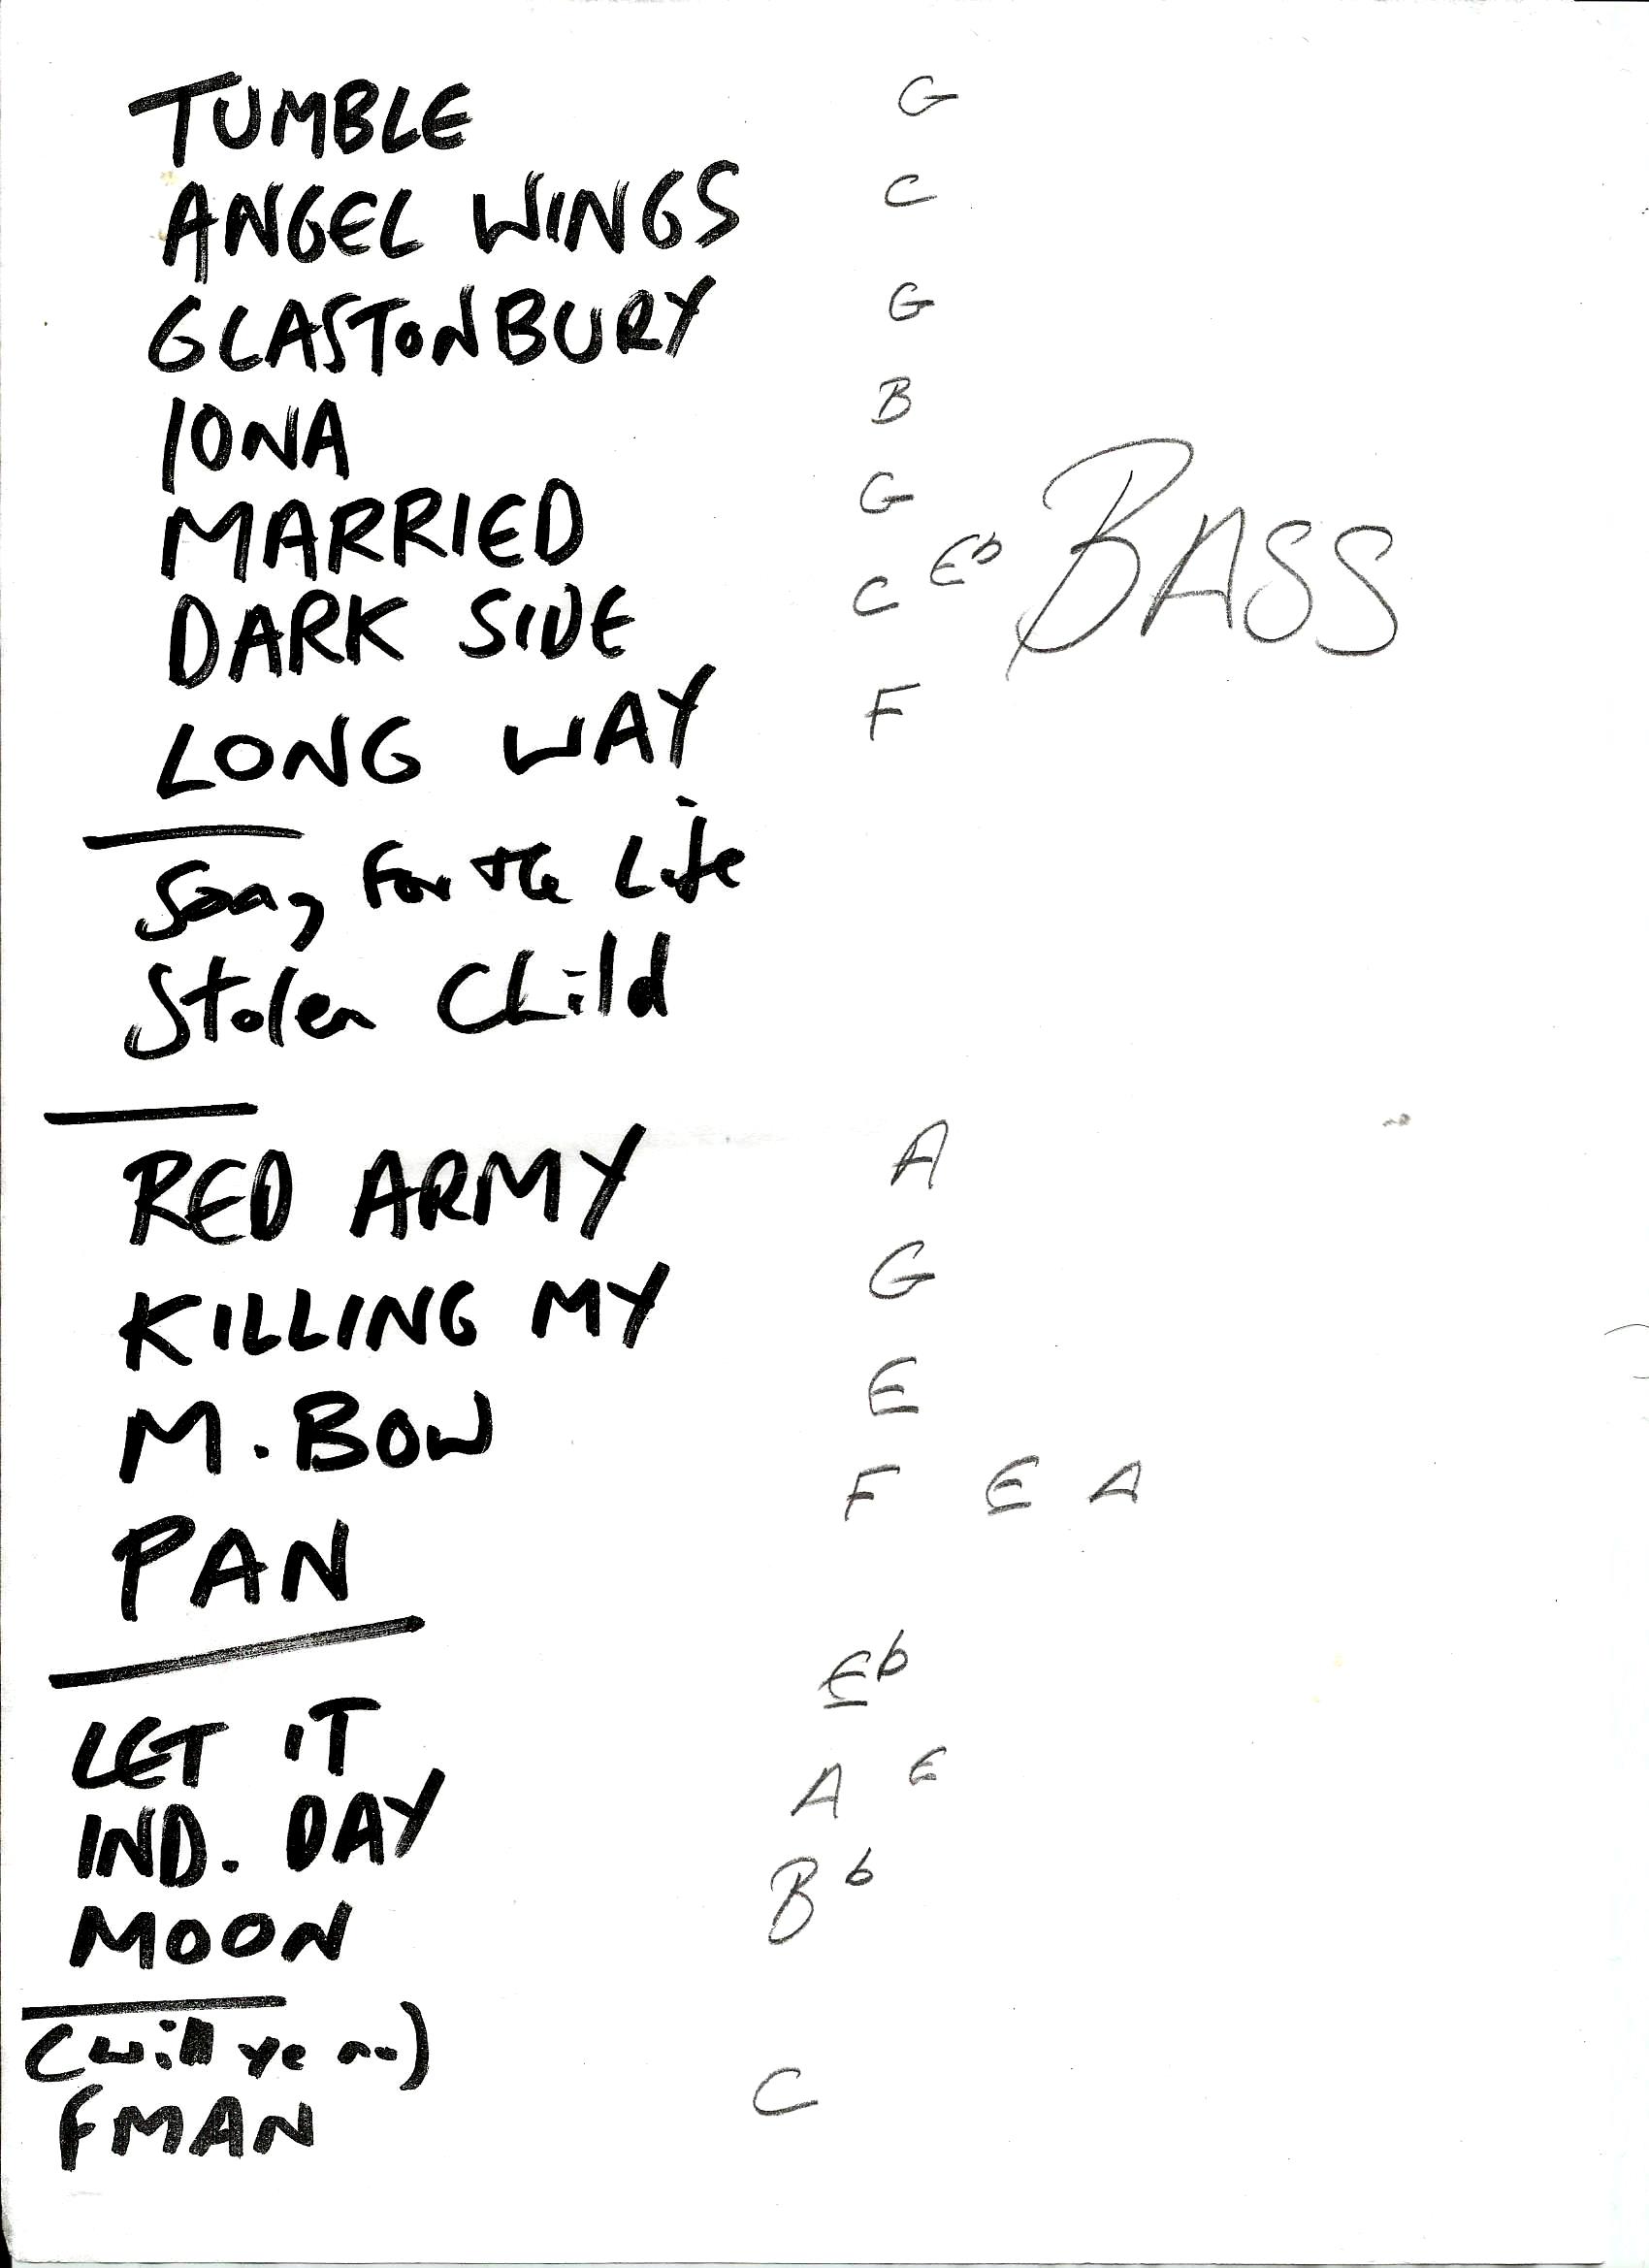 TUMBLE G
ANGEL WINGS C
GLASTONBURY G
IONA B
MARRIED G
DARK SIDE C Eb BASS
LONG WAY F
Song For the Life
Stolen Child
RED ARMY A
KILLING MY G
M. BOW E
PAN F E A
LET IT Eb
IND. DAY A E
MOON Bb
(will ye no)
FMAN C